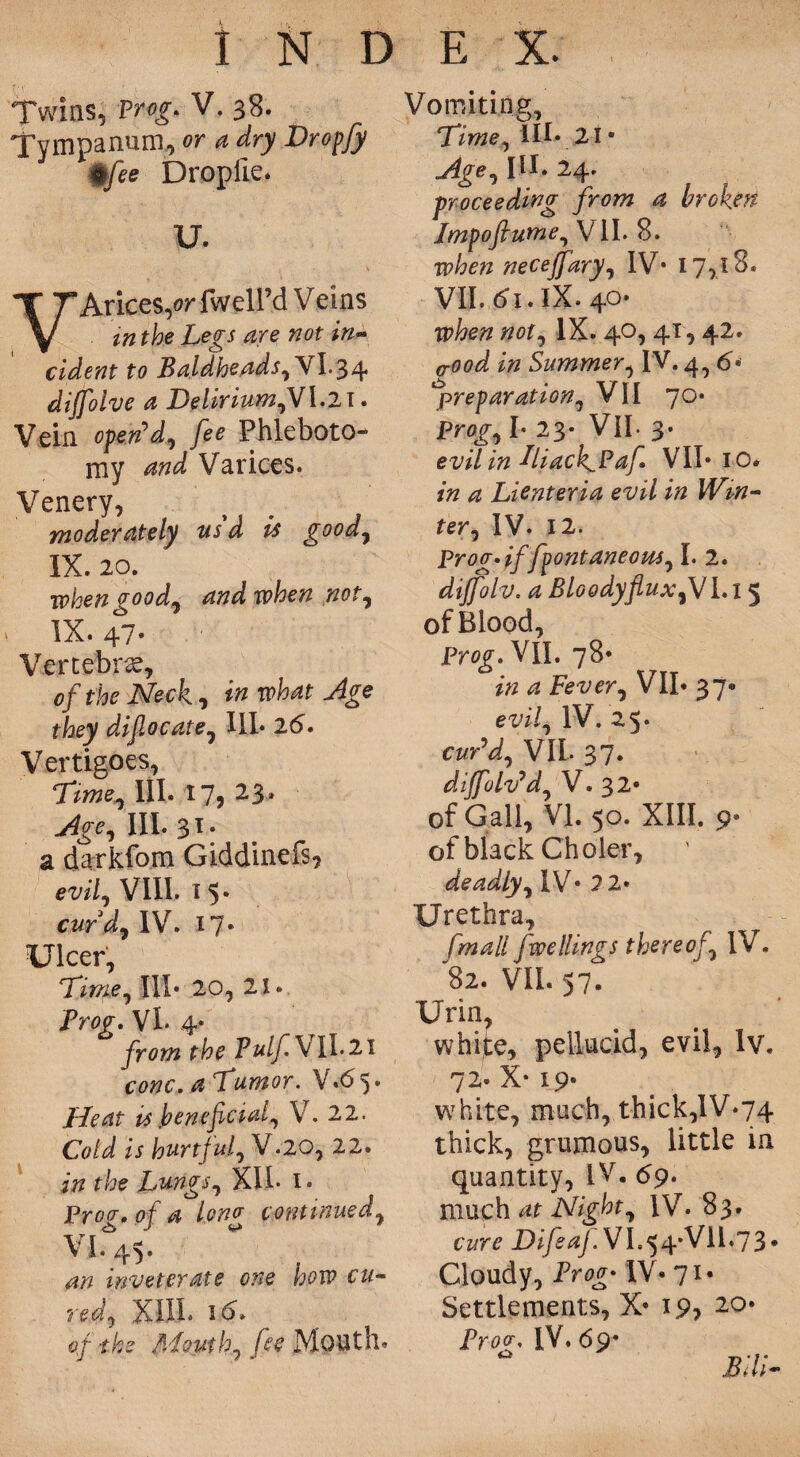 INDEX.
Twins, Prog. V. 38.
Tympanum, or a dry Dropſy
ſee Dropſie.
U.
VArices, or ſwell'd Veins
in the Legs are not in-
cident to Baldheads, VI. 34
diſſolve a Delirium, VI. 21.
Vein open'd, ſee Phleboto-
my and Varices.
Venery,
moderately us'd is good,
IX. 20.
when good, and when not,
IX. 47.
Vertebræ,
of the Neck, in what Age
they diſlocate, III. 26.
Vertigoes,
Time, III. 17, 23.
Age, III. 31.
a darkſom Giddineſs,
evil, VIII. 15.
cur'd, IV. 17.
Ulcer,
Time, III. 20, 21.
Prog. VI. 4.
from the Pulſ. VII. 21
conc. a Tumor. V. 65.
Heat is beneficial, V. 22.
Cold is hurtful, V. 20, 22.
in the Lungs, XII. 1.
Prog. of a long continued,
VI. 45.
an inveterate one how cu-
red, XIII. 16.
of the Mouth, ſee Mouth.
Vomiting,
Time, III. 21.
Age, III. 24.
proceeding from a broken
Impoſtume, VII. 8.
when neceſſary, IV. 17, 18.
VII. 61. IX. 40.
when not, IX. 40, 41, 42.
good in Summer, IV. 4, 6.
preparation, VII 70.
Prog, I. 23. VII. 3.
evil in Iliack Paſ. VII. 10.
in a Lienteria evil in Win-
ter, IV. 12.
Prog. if ſpontaneous, I. 2.
diſſolv. a Bloodyflux, VI. 15
of Blood,
Prog. VII. 78.
in a Fever, VII. 37.
evil, IV. 25.
cur'd, VII. 37.
diſſolv'd, V. 32.
of Gall, VI. 50. XIII. 9.
of black Choler,
deadly, IV. 22.
Urethra,
ſmall ſwellings thereof, IV.
82. VII. 57.
Urin,
white, pellucid, evil, Iv.
72. X. 19.
white, much, thick, IV. 74
thick, grumous, little in
quantity, IV. 69.
much at Night, IV. 83.
cure Diſeaſ. VI. 54. VII. 73.
Cloudy, Prog. IV. 71.
Settlements, X. 19, 20.
Prog. IV. 69.
Bili-